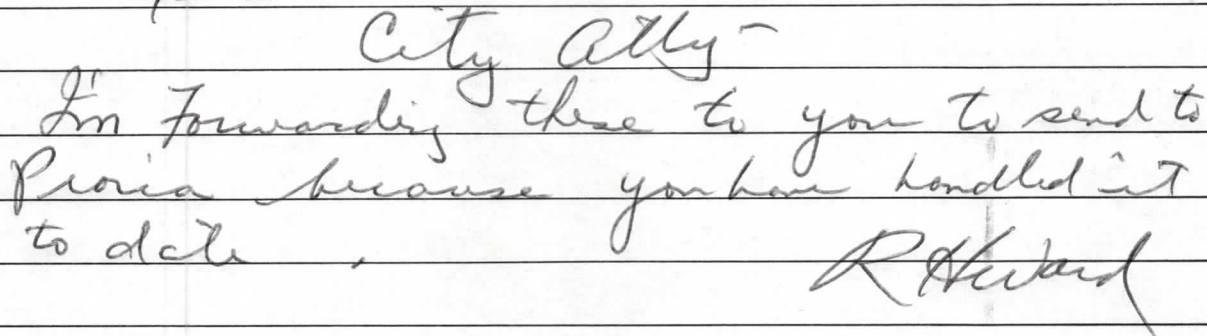 City Atty -
I'm Forwarding these to you to send to
Pioria because you have handled it
to date .
R Heward